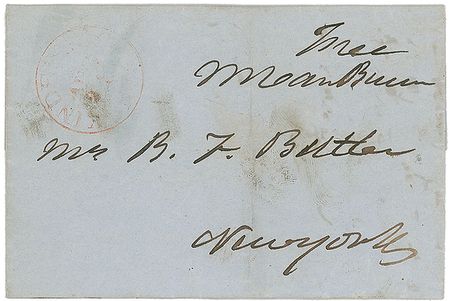 Free
MVan Buren
Mrs B. F. Butler
New York